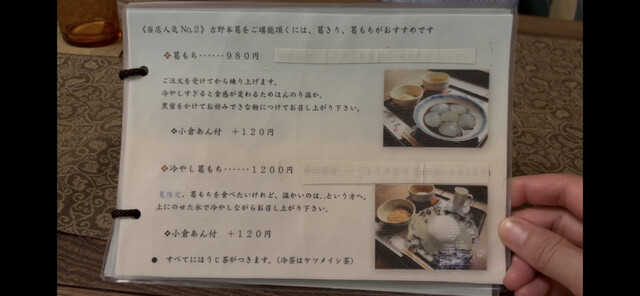 《当店人気No.2》吉野本葛をご堪能頂くには、葛きり、葛もちがおすすめです
❖葛もち‥‥‥980円
ご注文を受けてから練り上げます。
冷やしすぎると食感が変わるためほんのり温か。
黒蜜をかけてお好みできな粉につけてお召し上がり下さい。
❖小倉あん付 +120円
❖冷やし葛もち‥‥‥1200円
夏限定、葛もちを食べたいけれど、温かいのは‥という方へ。
上にのせた氷で冷やしながらお召し上がり下さい。
❖小倉あん付 +120円
● すべてにほうじ茶がつきます。(冷茶はケツメイシ茶)